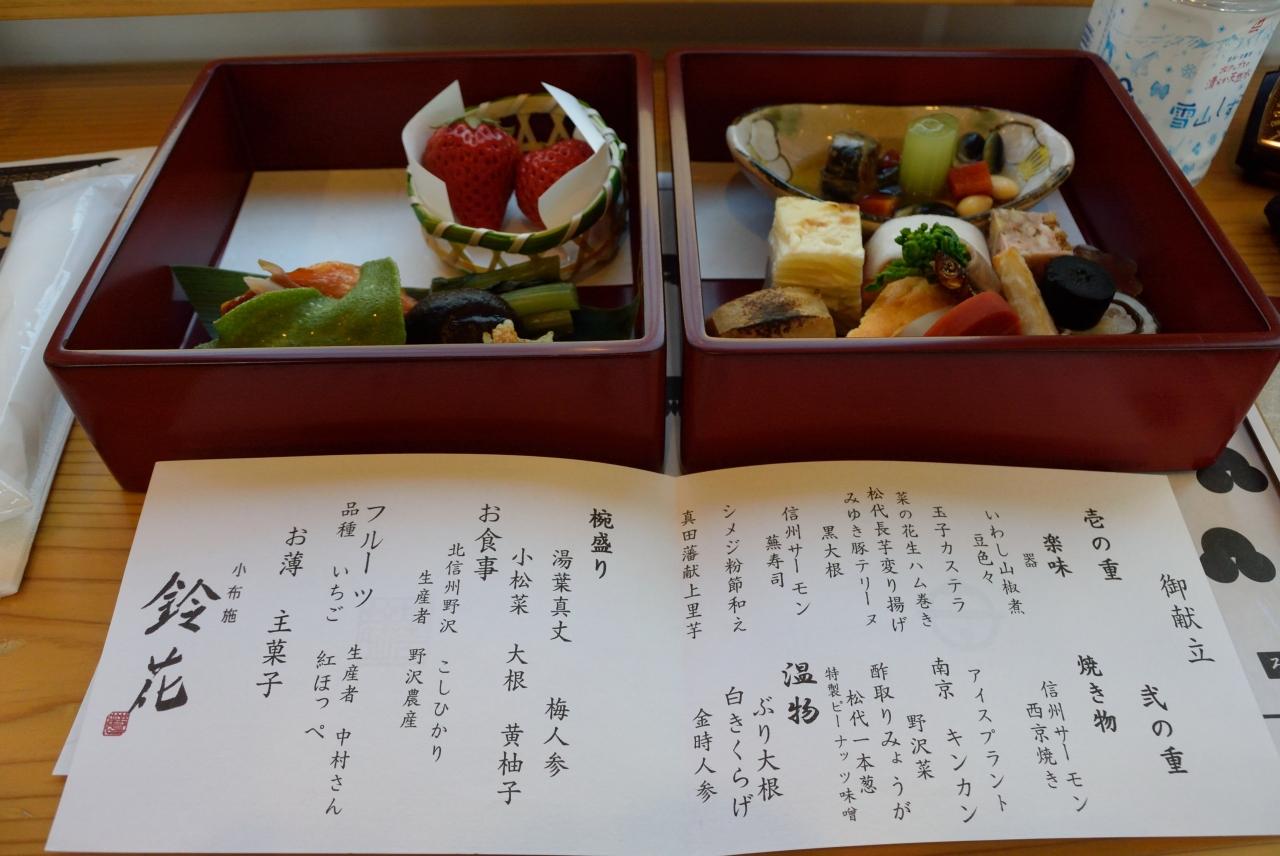 御献立
壱の重
楽味
器
いわし山椒煮
豆色々
玉子カステラ
菜の花生ハム巻き
松代長芋変り揚げ
みゆき豚テリーヌ
黒大根
信州サーモン
蕪寿司
シメジ粉節和え
真田藩献上里芋
弐の重
焼き物
信州サーモン
西京焼き
アイスプラント
南京 キンカン
野沢菜
酢取りみょうが
松代一本葱
特製ピーナッツ味噌
温物
ぶり大根
白きくらげ
金時人参
椀盛り
湯葉真丈 梅人参
小松菜 大根 黄柚子
お食事
北信州野沢 こしひかり
生産者 野沢農産
フルーツ
品種 いちご 紅ほっぺ
生産者 中村さん
お薄 主菓子
小布施
鈴花
雪山しず